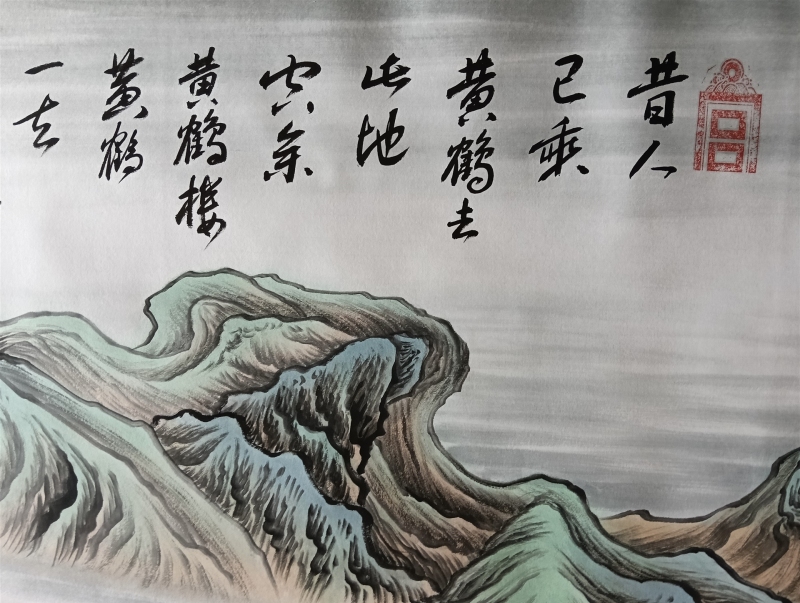 昔人
已乘
黄鹤去
此地
空余
黄鹤楼
黄鹤
一去